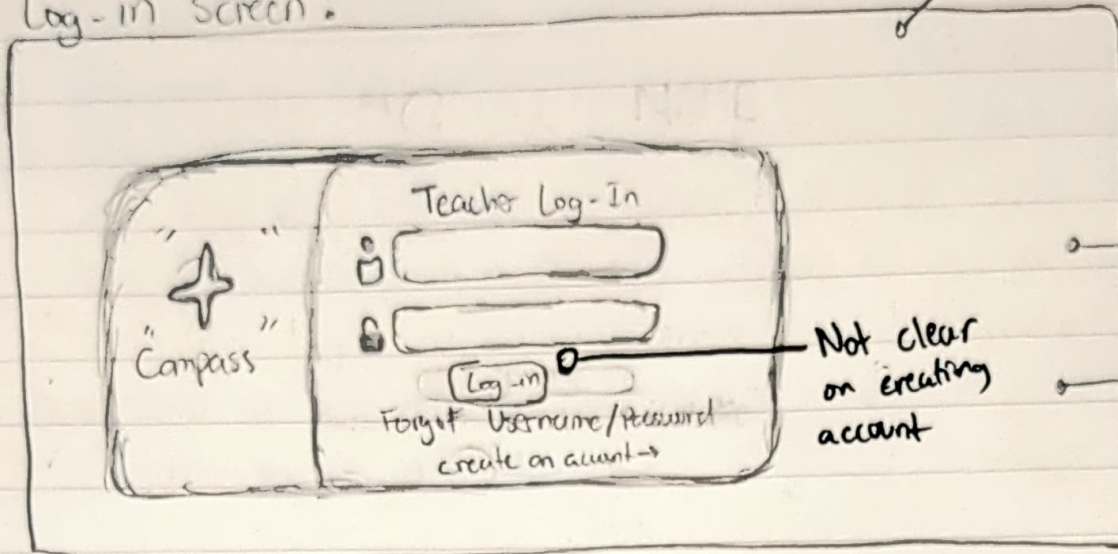 Log-in Screen.
Teacher Log-In
Compass
Log-in
Forgot Username/Password
create an account→
Not clear
on creating
account